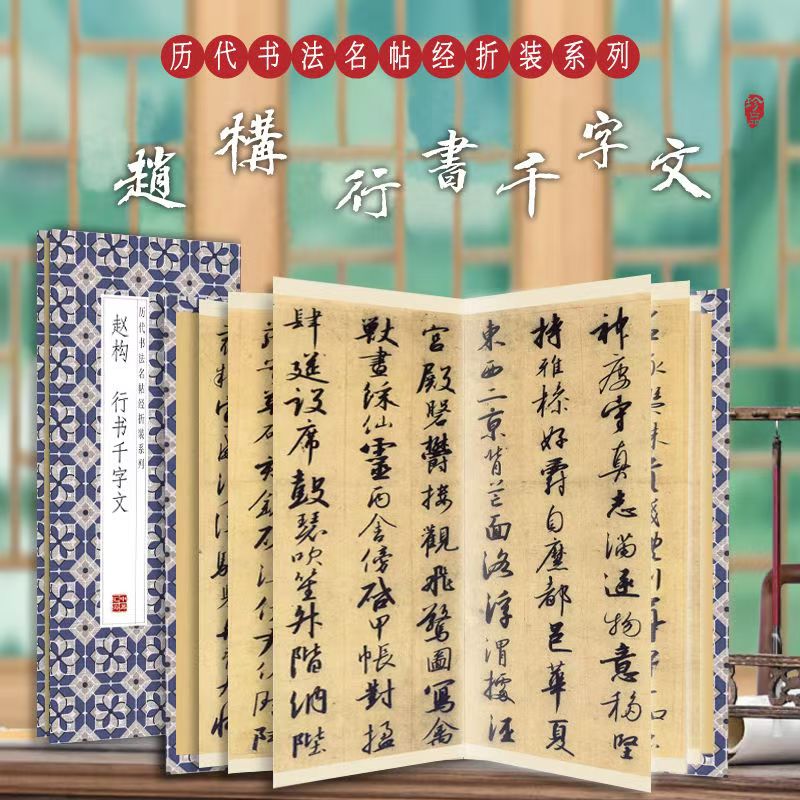 历代书法名帖经折装系列
趙構行書千字文
珍品
历代书法名帖经折装系列
赵构 行书千字文
神疲守真志滿逐物意移堅
持雅操好爵自縻都邑華夏
東西二京背芒面洛浮渭據涇
宮殿磐鬱樓觀飛驚圖寫禽
獸畫綵仙靈丙舍傍啟甲帳對楹
肆筵設席鼓瑟吹笙升階納陛